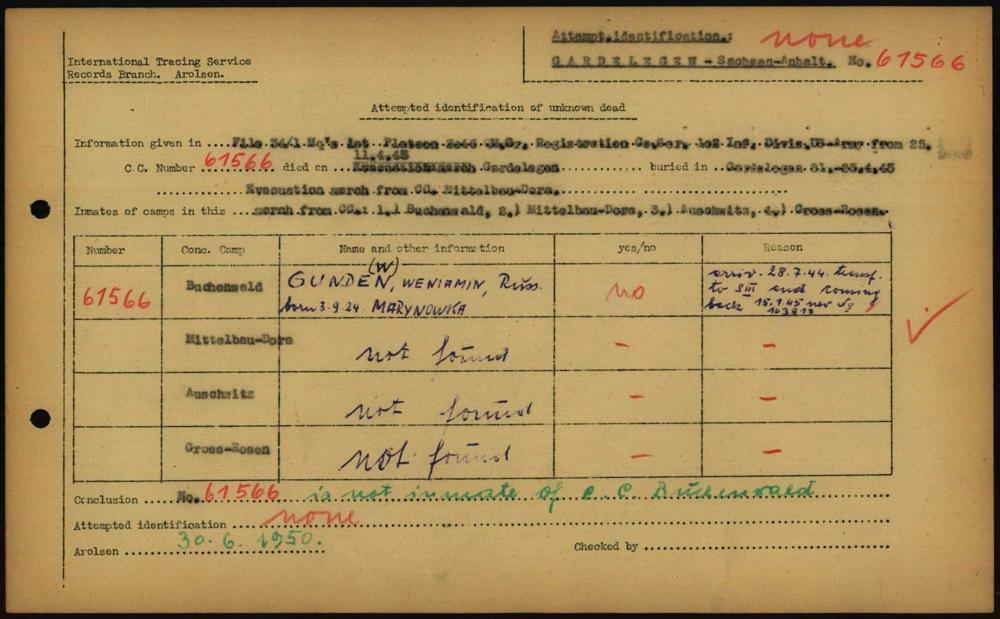 Attempt.identification.: none
International Tracing Service
Records Branch. Arolsen.
GARDELEGEN - Sachsen-Anhalt. No. 61566
Attempted identification of unknown dead
Information given in ....File 34/1 Hq's 1st Platoon 3046 QM.Gr. Registration Co.Ser. 102 Inf. Divis.US-Army from 25.
11.4.45
C.C. Number 61566 died on ...Evacuation march Gardelegen............. buried in ...Gardelegen 21.-25.4.45
Evacuation march from CC. Mittelbau-Dora.
Inmates of camps in this ....march from CC.: 1.) Buchenwald, 2.) Mittelbau-Dora, 3.) Auschwitz, 4.) Gross-Rosen.
Number Conc. Camp Name and other information yes/no Reason
61566 Buchenwald GUNDEN, (W) WENIAMIN, Russ. no arriv. 28.7.44. transf.
born 3.9.24. MARYNOWKA to SIII and coming
back 15.1.45 new No
103813
Mittelbau-Dora not found - -
Auschwitz not found - -
Gross-Rosen not found - -
Conclusion .....No. 61566 is not inmate of C.C. Buchenwald
Attempted identification ....none
Arolsen ......30.6.1950. Checked by